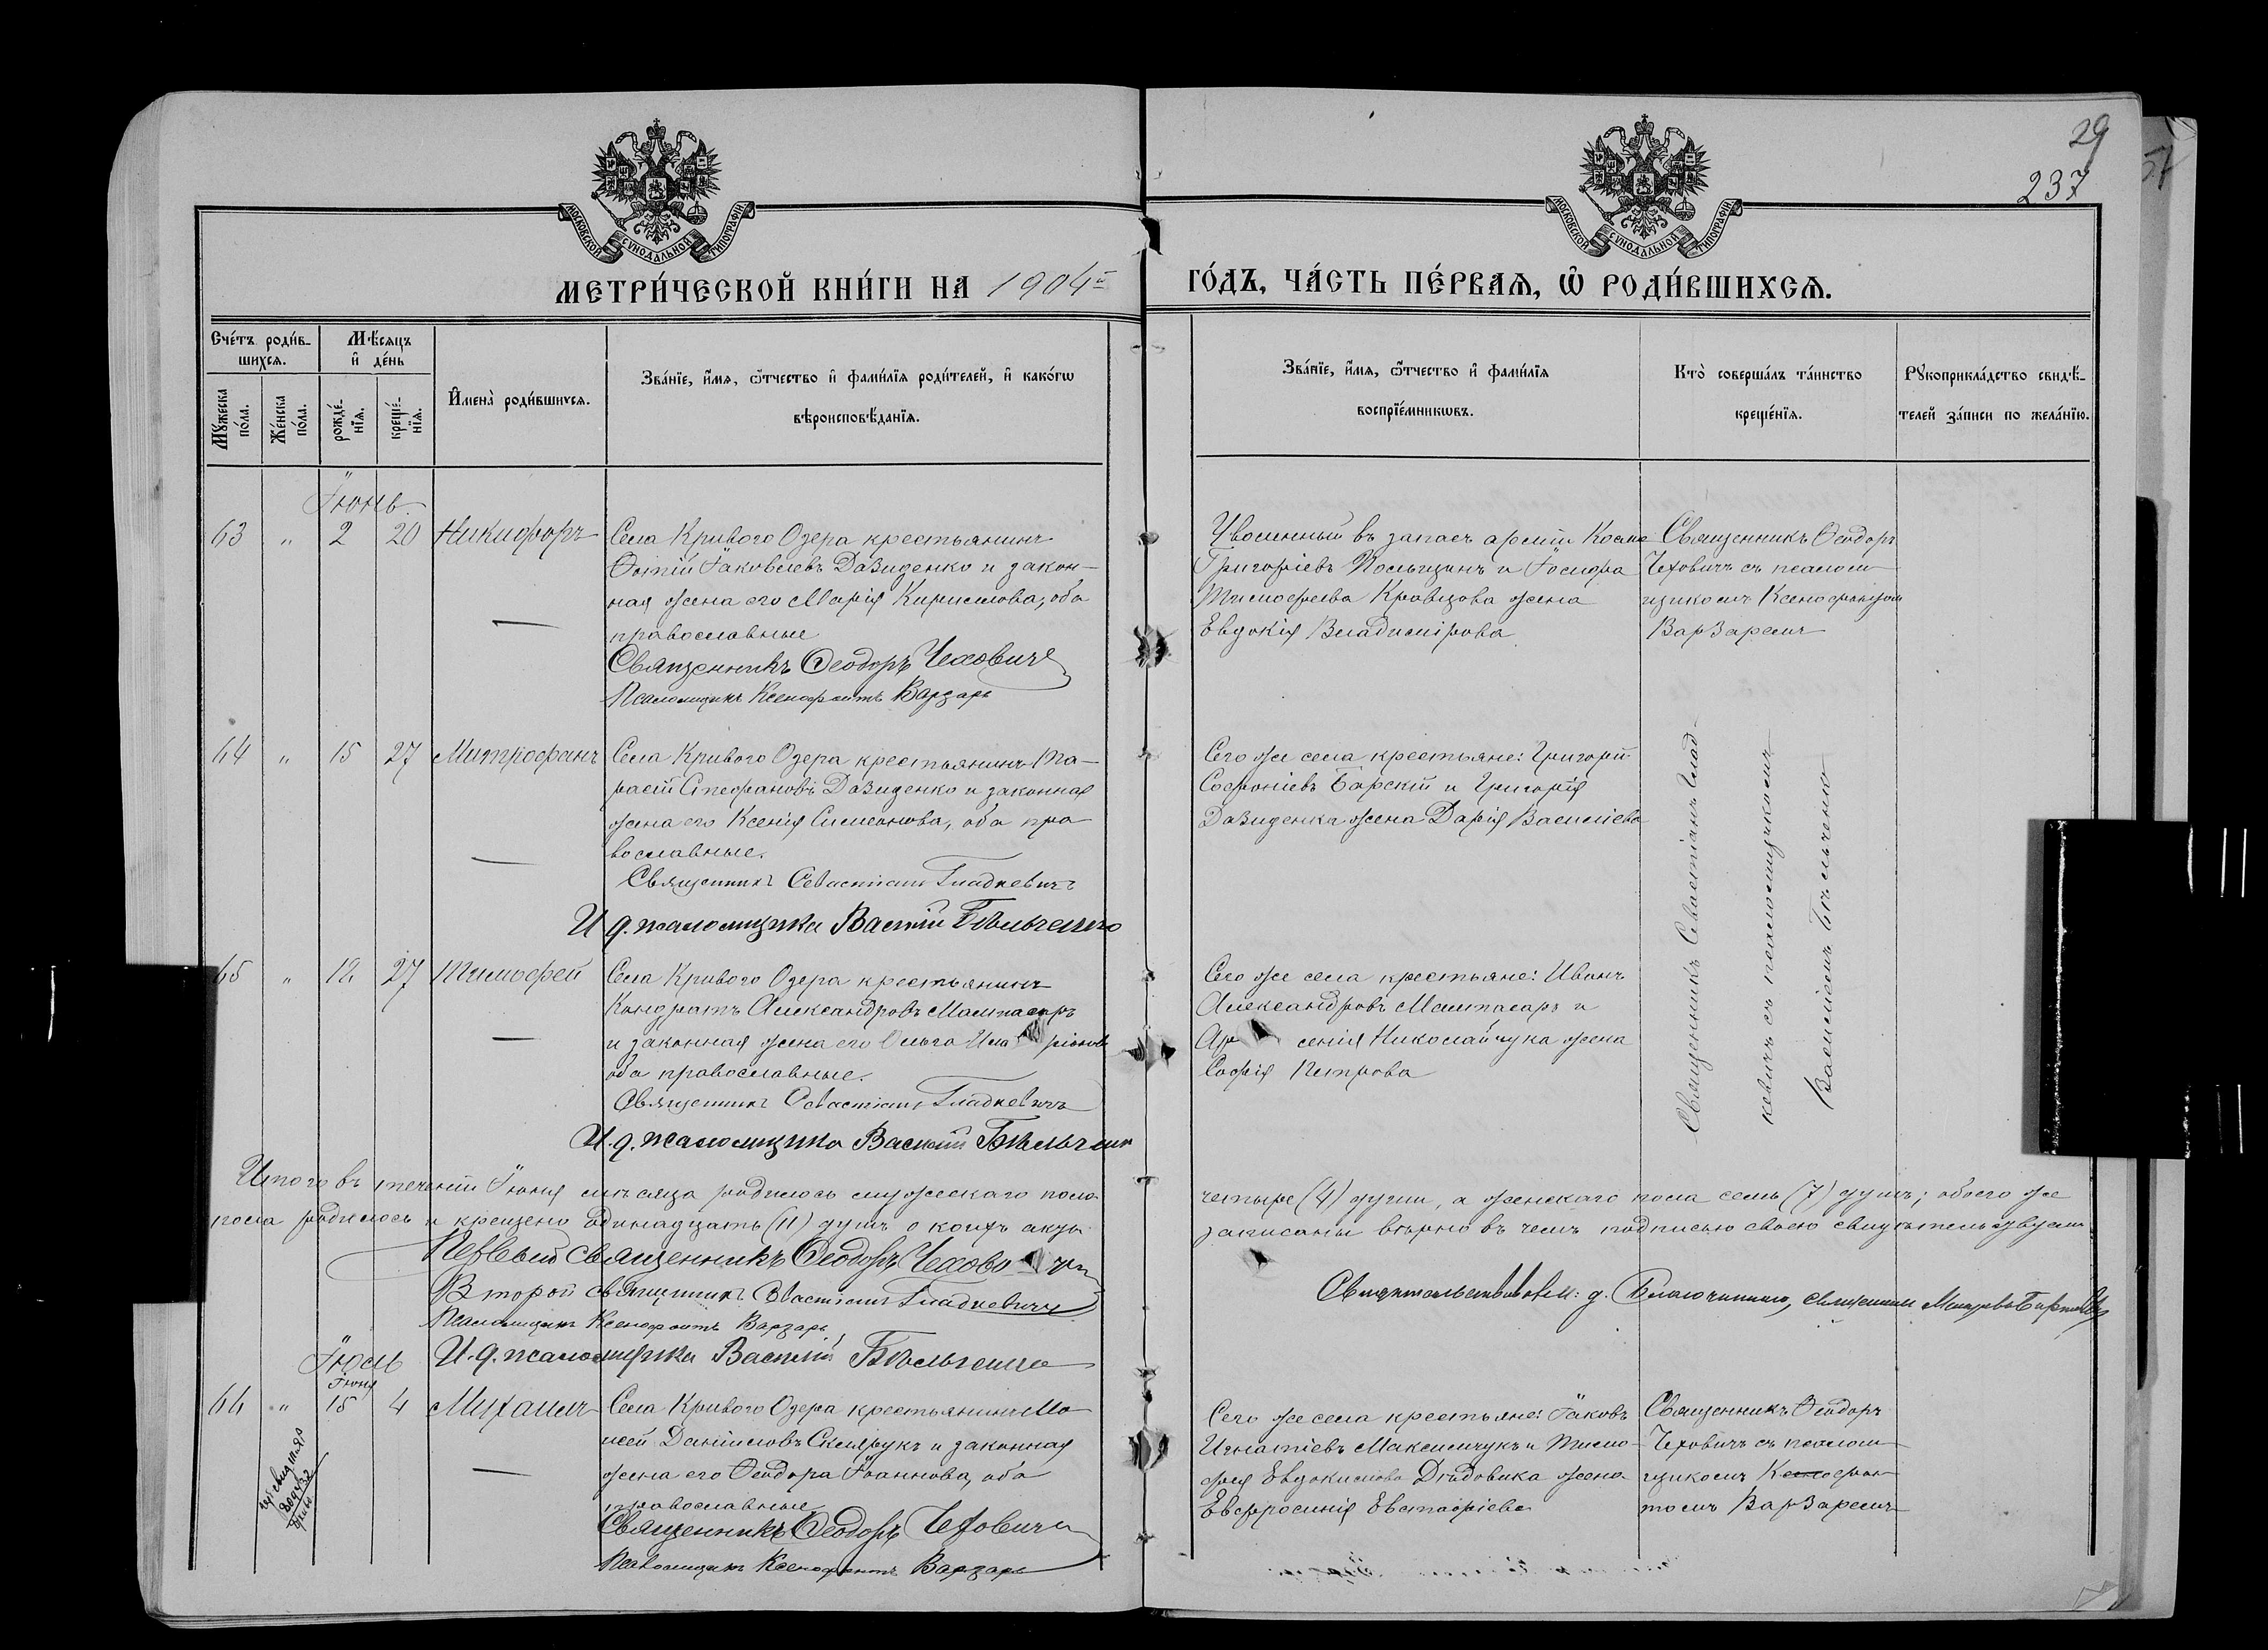 29
237
МОСКОВСКОЙ СѴНОДАЛЬНОЙ ТИПОГРАФІИ
МОСКОВСКОЙ СѴНОДАЛЬНОЙ ТИПОГРАФІИ
МЕТРИ́ЧЕСКОЙ КНИ́ГИ НА 1904й
ГО́ДЪ, ЧА́СТЬ ПЕ́РВАѦ, Ѽ РОДИ́ВШИХСѦ.
Сче́тъ роди́в-
шихсѧ.
Мѣ́сяцъ
и҆ де́нь
Мꙋ́жеска
по́ла.
Же́нска
по́ла.
рожде́-
нїѧ.
креще́-
нїѧ.
И҆мена̀ роди́вшихсѧ.
Зва́нїе, и҆́мѧ, ѻ҆́тчество и҆ фами́лїѧ роди́телей, и҆ како́гѡ
вѣроисповѣ́данїѧ.
Зва́нїе, и҆́мѧ, ѻ҆́тчество и҆ фами́лїѧ
воспрїе́мникѡвъ.
Кто̀ соверша́лъ та́инство
креще́нїѧ.
Рꙋкоприкла́дство свидѣ́-
телей за́писи по жела́нїю.
Іюнь
63 " 2 20 Никифоръ
Села Криваго Озера крестьянинъ
Фотій Іаковлевъ Давиденко и закон-
ная жена его Марія Кириллова, оба
православные
Священникъ Ѳеодоръ Чеховичъ
Псаломщикъ Ксенофонтъ Варзарь
Уволенный въ запасъ арміи Косма
Григоріевъ и
Тимофеева жена
Евдокія Владимірова
Священникъ Ѳеодоръ
Чеховичъ съ псалом
щикомъ Ксенофонтом
Варзаремъ
64 " 15 27 Митрофанъ
Села Криваго Озера крестьянинъ Та-
расій Стефановъ Давиденко и законная
жена его Ксенія Симеонова, оба пра
вославные.
Священникъ Севастіанъ Гладкевичъ
И д. псаломщика Василій Бѣльченко
Сего же села крестьяне: Григорій
Софроніевъ Барскій и Григорія
Давиденка жена Дарія Василіева
Священникъ Севастіанъ Глад
кевичъ съ псаломщикомъ
Василіемъ Бѣльченко
65 " 12 27 Тимофей
Села Криваго Озера крестьянинъ
Кондратъ Александровъ
и законная жена его Ольга
оба православные.
Священникъ Севастіанъ Гладкевичъ
И. д. псаломщика Василій Бѣльченко
Сего же села крестьяне: Иванъ
Александровъ и
сенія Николайчука жена
Софія Петрова
Итого въ теченіи Іюня мѣсяца родилось мужескаго пола
четыре (4) души, а женскаго пола семь (7) душъ; обоего же
пола родилось и крещено одинадцать (11) душъ о коихъ акты
записаны вѣрно въ чемъ подписью своею свидѣтельствуемъ
Первый священникъ Ѳеодоръ Чеховичъ
Второй священникъ Севастіанъ Гладкевичъ
Псаломщикъ Ксенофонтъ Варзарь
И. д. псаломщика Василій Бѣльченко
Свидѣтельствовалъ: д. Благочиннаго, священникъ
Іюль
Іюня
66 " 15 4 Михаилъ
Села Криваго Озера крестьянинъ Мо
исей Даніиловъ Склярукъ и законная
жена его Ѳеодора Іоаннова, оба
православные
Священникъ Ѳеодоръ Чеховичъ
Псаломщикъ Ксенофонтъ Варзарь
Сего же села крестьяне: Іаковъ
Игнатіевъ Максимчукъ и Тимо-
фея Евдокимова Дидовика жена
Евфросинія Евстафіева
Священникъ Ѳеодоръ
Чеховичъ съ псалом
щикомъ Ксенофон
томъ Варзаремъ